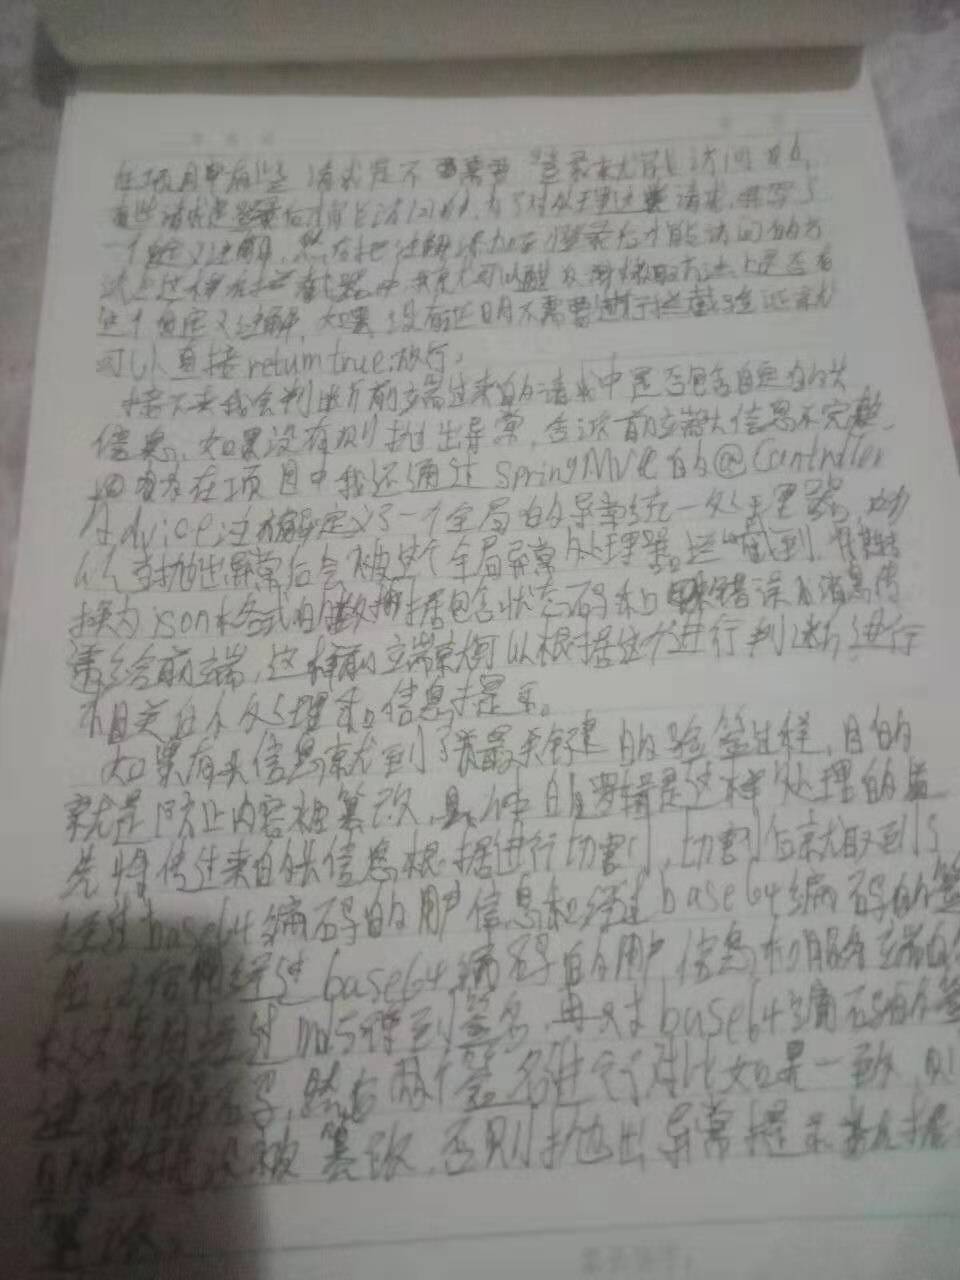 在项目中有些请求是不需要登录就可以访问的,
有些请求是登录后才能访问的,为了对处理这类请求,
一个自定义注解,然后把注解添加到登录后才能访问的方
法上这样在拦截器中我就可以 获取方法上是否有
这个自定义注解,如果没有证明不需要进行拦截验证就
可以直接return true;放行,
接下来我会判断前端过来的请求中是否包含自定义的头
信息,如果没有则抛出异常,告诉前端头信息不完整,
在项目中我还通过SpringMVC的@Controller
Advice注解定义了一个全局的异常统一处理器,所
以当抛出异常后会被这个全局异常处理器拦截到,
换为json格式的数据包含状态码和错误消息传
递给前端,这样前端就可以根据这个进行判断,进行
相关的处理和信息提示。
如果有头信息就到了最关键的验签过程,目的
就是防止内容被篡改,具体的逻辑是这样处理的首
先将传过来的头信息根据进行切割,切割后就取到了
经过base64编码的用户信息和经过base64编码的签
名,之后将经过base64编码的用户信息和服务端的
经过md5得到签名,再对base64编码的签
进行 ,然后两个签名进行对比如果一致,则
没被篡改,否则抛出异常提示数据